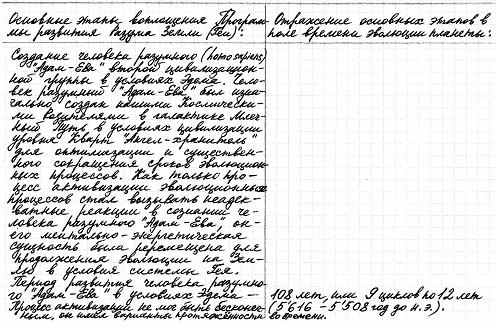 Основные этапы воплощения Програм-
мы развития Разума Земли (Геи):
Отражение основных этапов в
поле времени эволюции планеты:
Создание человека разумного (homo sapiens)
"Адам-Ева" второй цивилизацион-
ной группы в условиях Эдема. Чело-
век разумный "Адам-Ева" был изна-
чально создан нашими Космически-
ми Водителями в галактике Млеч-
ный Путь в условиях цивилизации
уровня Кварт "Ангел-хранитель"
для оптимизации и существен-
ного сокращения сроков эволюцион-
ных процессов. Как только про-
цесс активизации эволюционных
процессов стал вызывать неадек-
ватные реакции в сознании че-
ловека разумного "Адам-Ева", он-
его ментально-энергетическая
сущность была перемещена для
продолжения эволюции на Зем-
лю в условия системы Гея.
Период развития человека разумно-
го "Адам-Ева" в условиях Эдема -
108 лет, или 9 циклов по 12 лет
Процесс активизации не мог быть бесконеч-
(5616 - 5508 год до н.э.).
ным, он имел варианты протяжённости во времени.